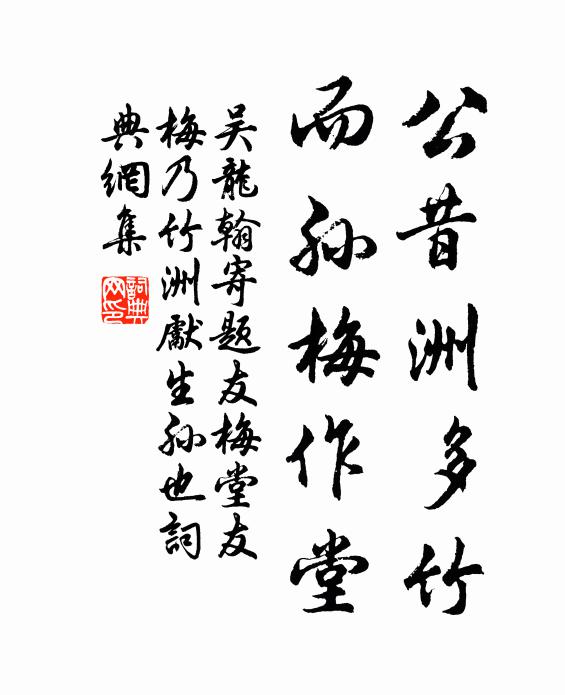 公昔洲多竹
而孙梅作堂
吴龍翰寄題友梅堂友
梅乃竹洲獻生孙也詞
典網集
詞典网印